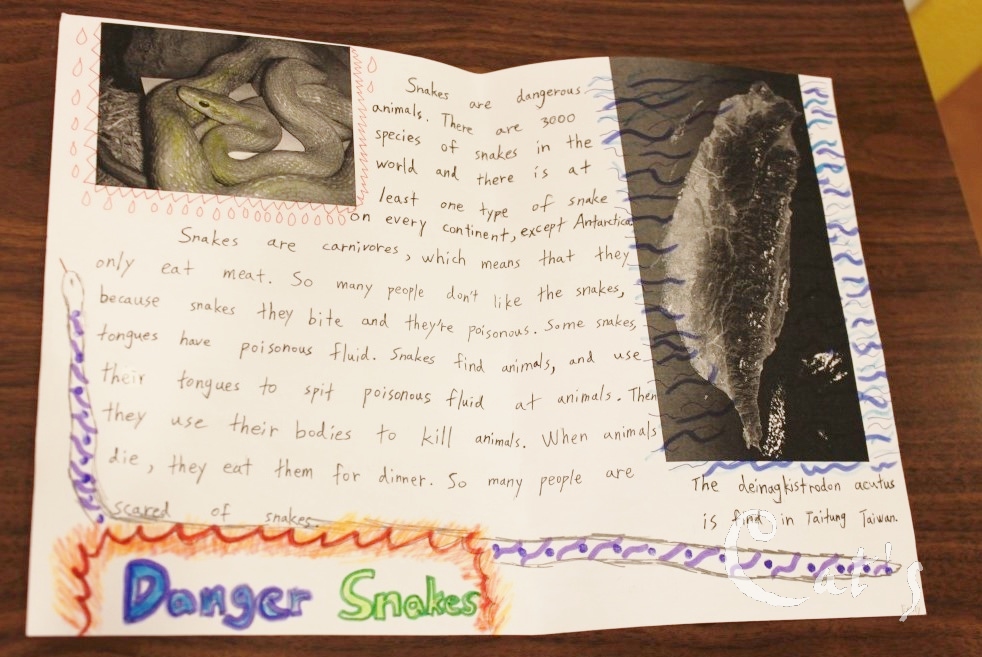 Snakes are dangerous
animals. There are 3000
species of snakes in the
world and there is at
least one type of snake
on every continent, except Antarctica
Snakes are carnivores, which means that they
only eat meat. So many people don't like the snakes,
because snakes they bite and they're poisonous. Some snakes,
tongues have poisonous fluid. Snakes find animals, and use
their tongues to spit poisonous fluid at animals. Then
they use their bodies to kill animals. When animals
die, they eat them for dinner. So many people are
scared of snakes.
The deinagkistrodon acutus
is find in Taitung Taiwan.
Danger Snakes
Cat's